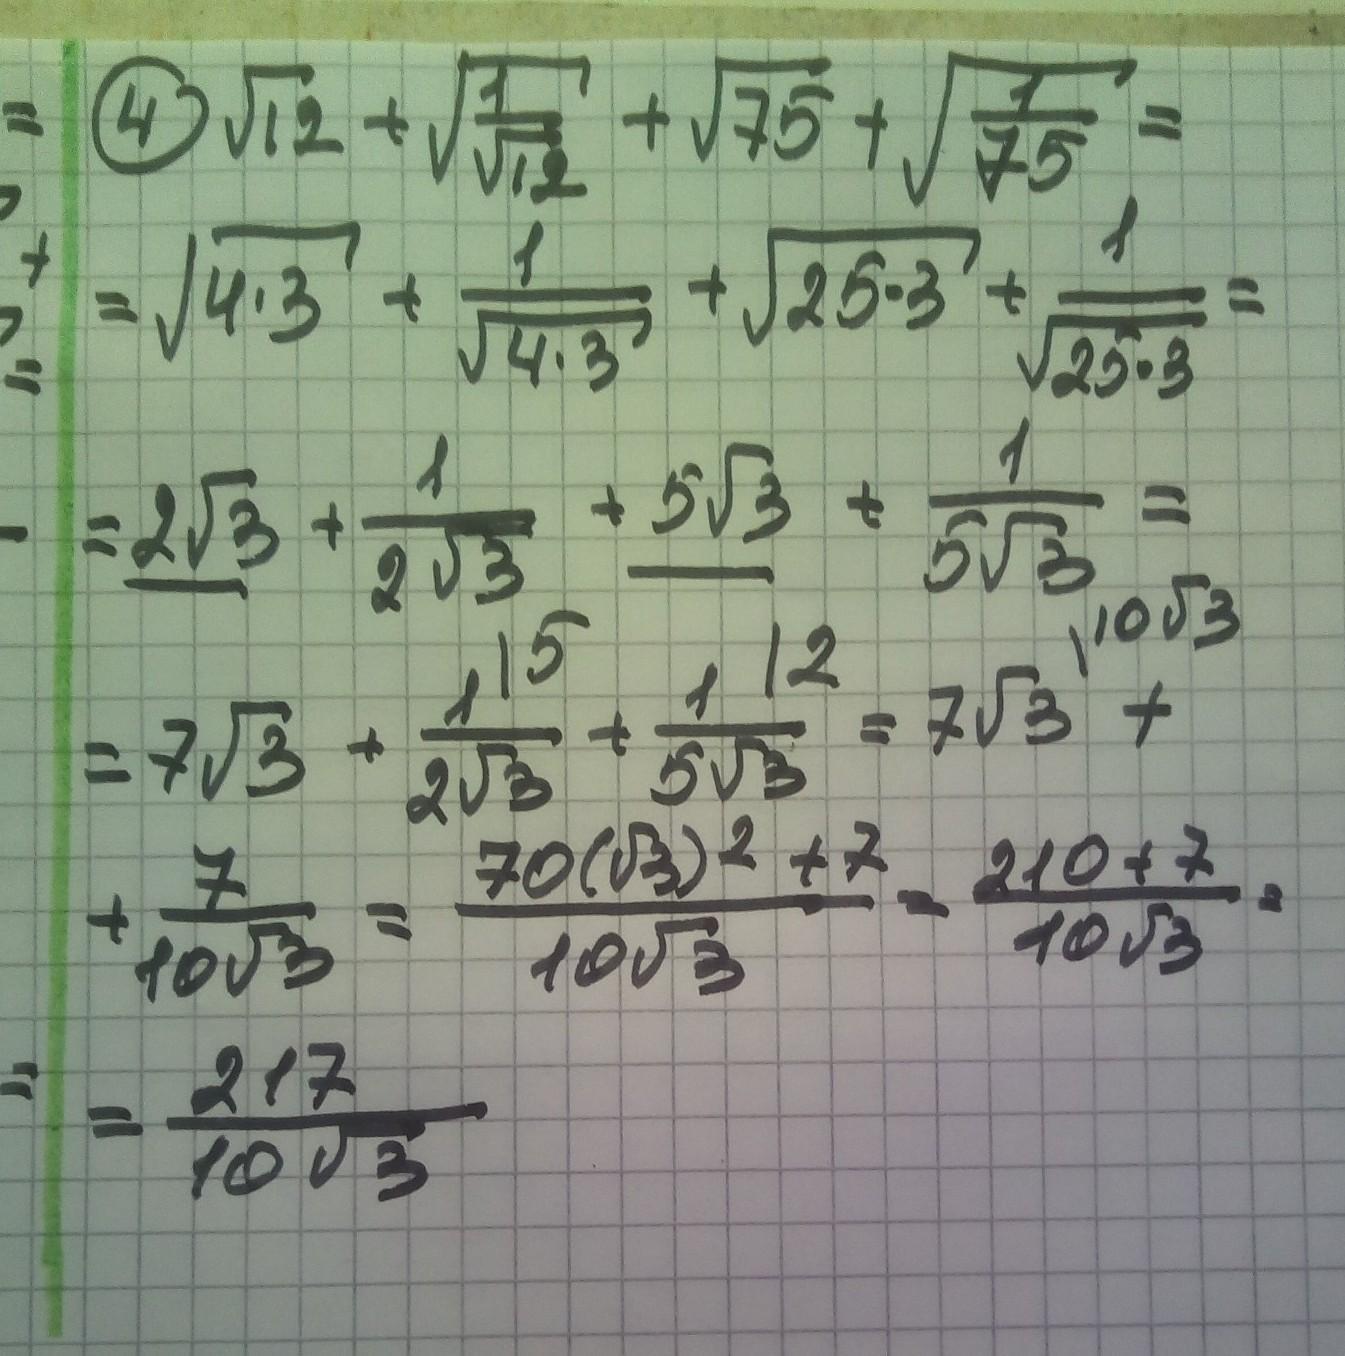 = ④ √12 + √(1/√12) + √75 + √(1/75) =
+ = √(4·3) + 1/√(4·3) + √(25·3) + 1/√(25·3) =
=
- = 2√3 + 1/(2√3) + 5√3 + 1/(5√3) =
= 7√3 + 1|5/(2√3) + 1|2/(5√3) = 7√3 \10√3 +
+ 7/(10√3) = (70(√3)² + 7)/(10√3) = (210 + 7)/(10√3) =
= = 217/(10√3)